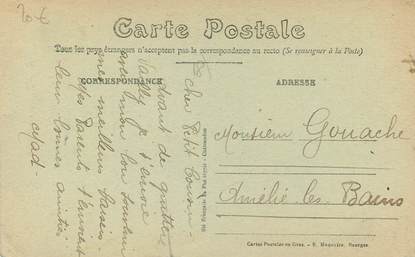 20 €
Carte Postale
Tous les pays étrangers n'acceptent pas la correspondance au recto (Se renseigner à la Poste)
CORRESPONDANCE
ADRESSE
Cher Petit Cousin
Avant de quitter
je t'envoie
avec mon bon souvenir
mes meilleurs baisers
Mes Parents t'envoient
leurs bonnes amitiés
Monsieur Gouache
Amélie-les-Bains
Cartes Postales en Gros. - Bourges.